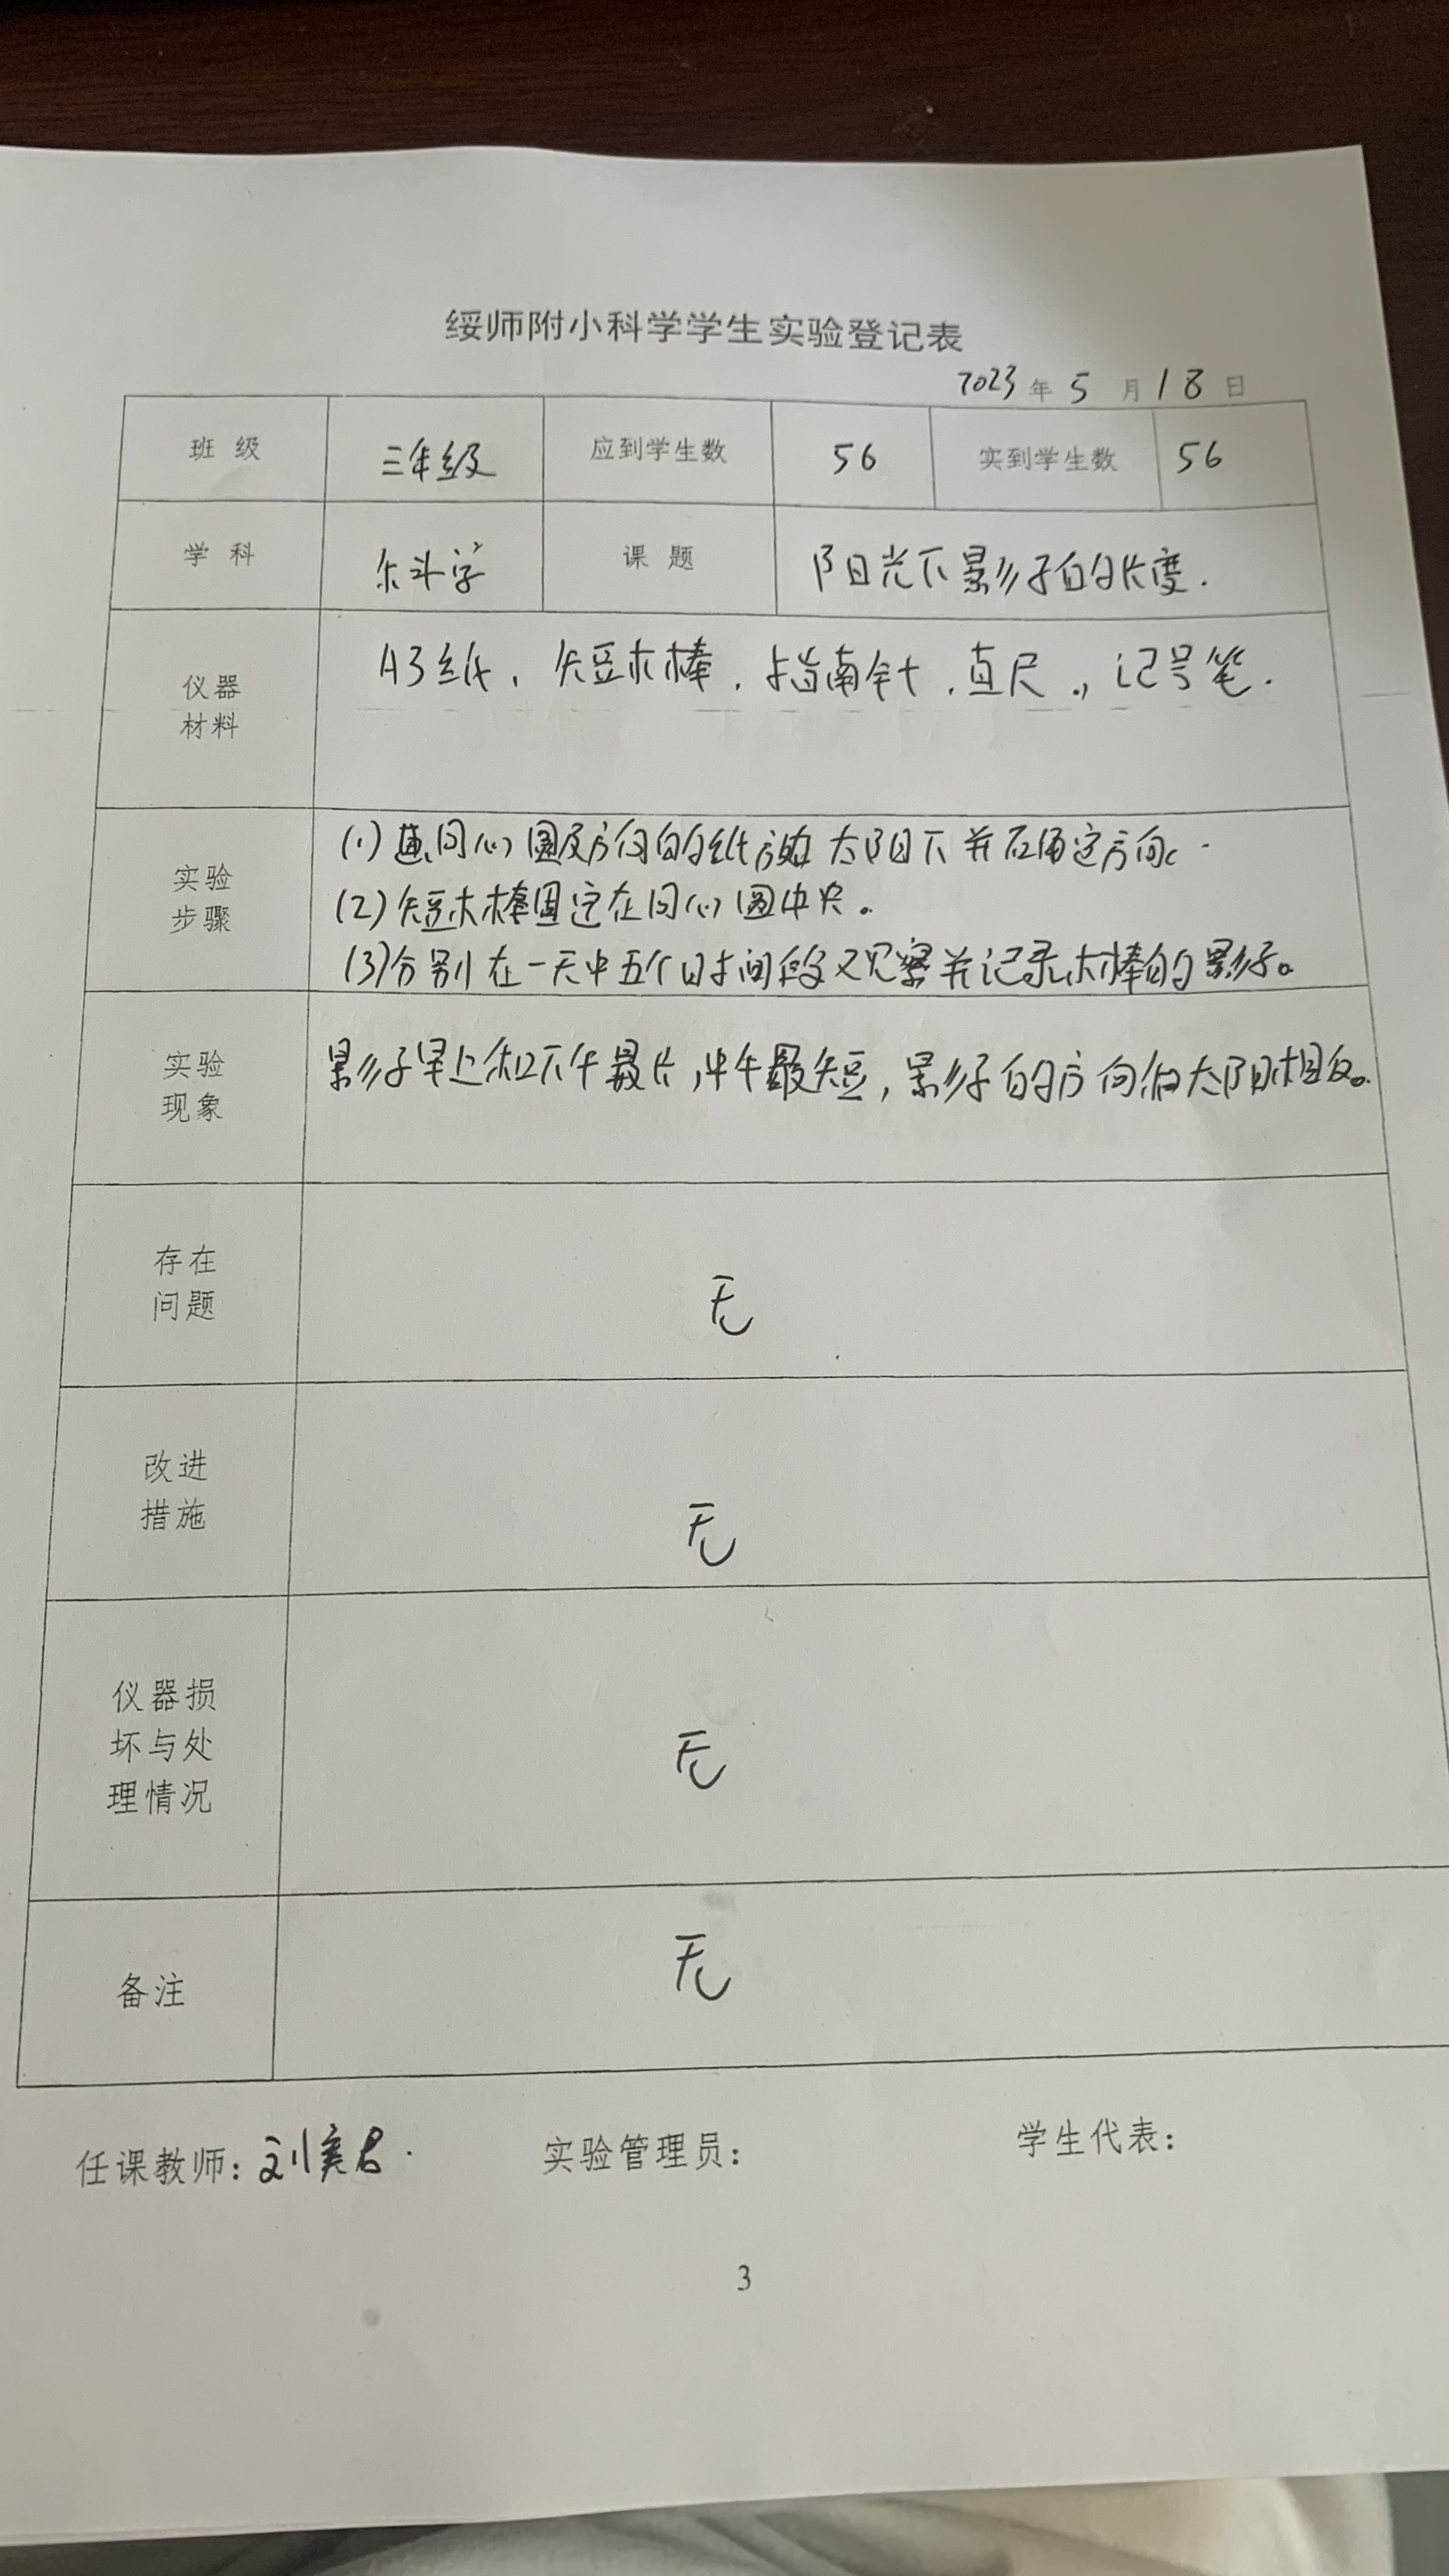 绥师附小科学学生实验登记表
2023年5月18日
班 级 三年级 应到学生数 56 实到学生数 56
学 科 科学 课 题 阳光下影子的长度.
仪器
材料
A3纸、短木棒、指南针、直尺、记号笔.
实验
步骤
(1)画同心圆及方向的纸放在太阳下并在确定方向。
(2)短木棒固定在同心圆中央。
(3)分别在一天中五个时间段观察并记录木棒的影子。
实验
现象
影子早上和下午最长,中午最短,影子的方向和太阳相反。
存在
问题
无
改进
措施
无
仪器损
坏与处
理情况
无
备注
无
任课教师:刘 实验管理员: 学生代表:
3